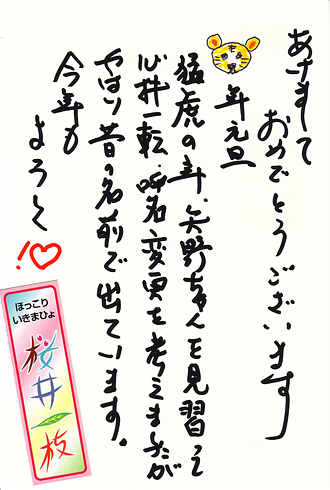 あけまして
おめでとうございます
年元旦
猛虎の年、矢野ちゃんを見習って
心井一転、呼名変更を考えましたが
やはり昔の名前で出ています。
今年も
よろしく
!♡
ほっこり
いきまひょ
桜井一枚